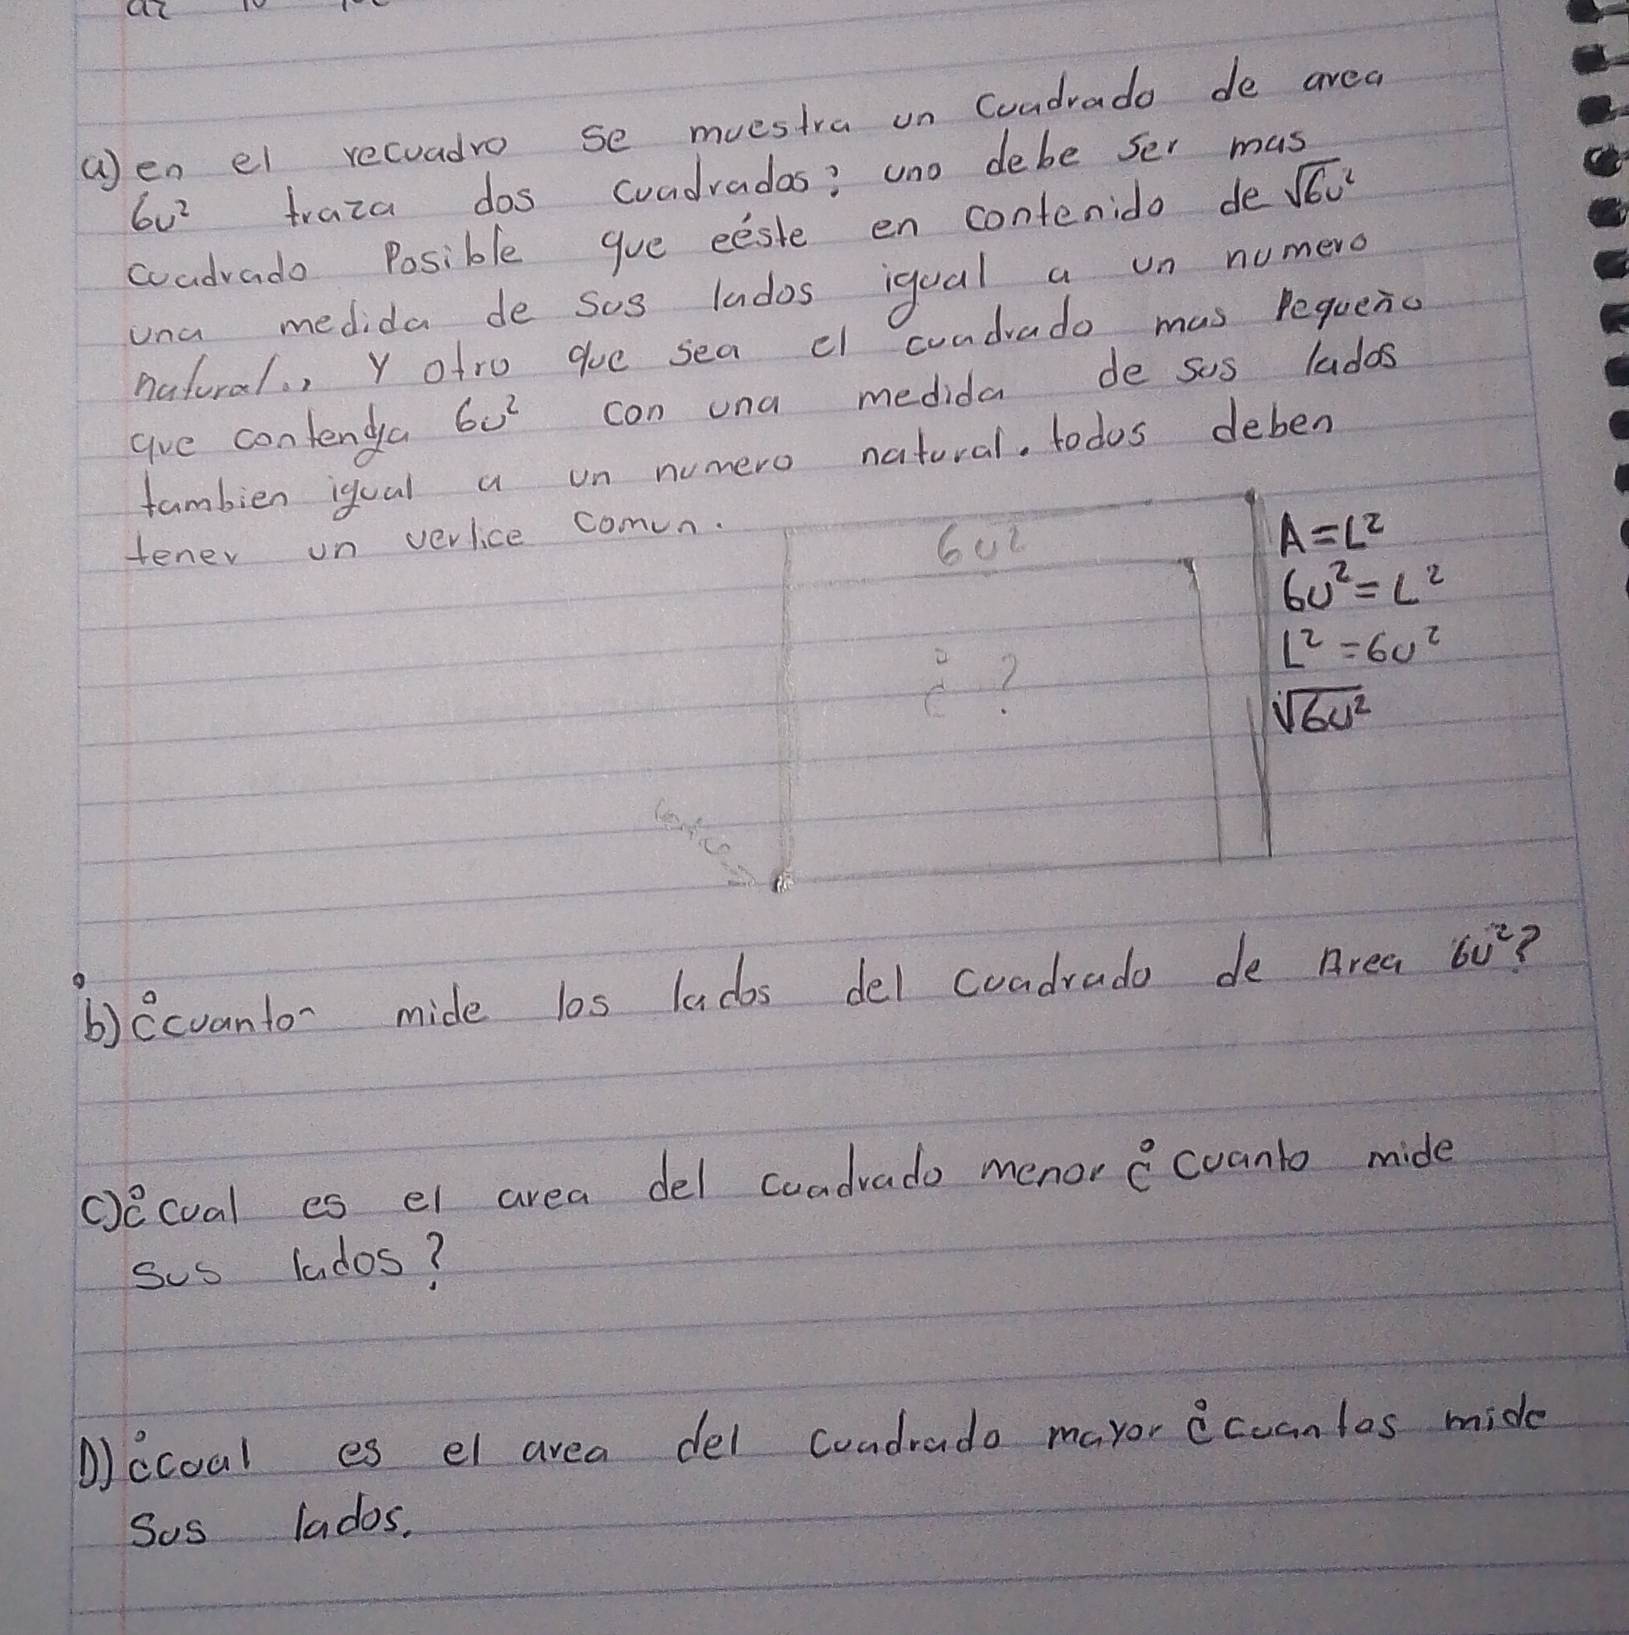 a) en el recuadro se muestra un Cuadrado de area
6u² traza dos cuadrados; uno debe ser mas
cuadrado Posible que eéste en contenido de √6u²
una medida de sus lados igual a un numero
natural., y otro que sea el cuadrado mas Pequeño
que contenga 6u² con una medida de sus lados
tambien igual a un numero natural. todos deben
tener un vertice comun.
6u²
¿ ?
A=L²
6u²=L²
L²=6u²
√6u²
b) ¿cuanto mide los lados del cuadrado de Area 6u²?
c) ¿cual es el area del cuadrado menor ¿cuanto mide
sus lados?
D) ¿cual es el area del cuadrado mayor ¿cuantos mide
sus lados.